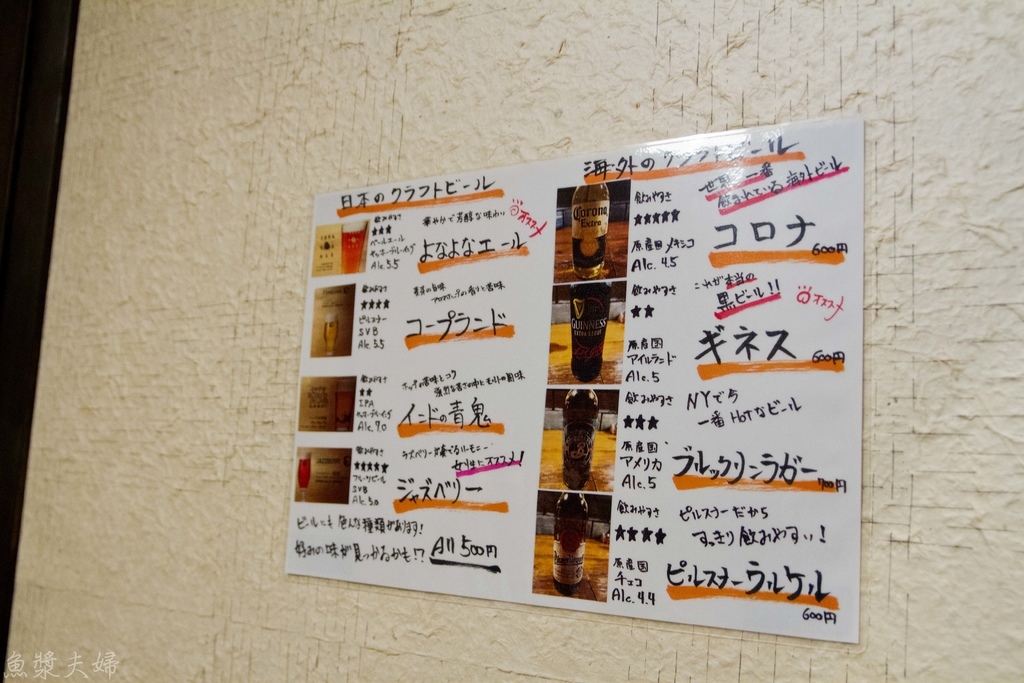 日本のクラフトビール
飲みやすさ
★★★
ペールエール
Alc.5.5
華やかで芳醇な味わい
オススメ
よなよなエール
飲みやすさ
★★★★
ピルスナー
SVB
Alc.5.5
コープランド
飲みやすさ
★★
IPA
Alc.7.0
ホップの苦味とコク
インドの青鬼
飲みやすさ
★★★★★
フルーツビール
SVB
Alc.5.0
ラズベリーが奏でるハーモニー
女性にオススメ!
ジャズベリー
ビールにも色んな種類があります!
好みの味が見つかるかも!? All 500円
海外のクラフトビール
Corona
Extra
飲みやすさ
★★★★★
原産国 メキシコ
Alc. 4.5
世界で一番
飲まれている海外ビール
コロナ
600円
GUINNESS
飲みやすさ
★★
原産国
アイルランド
Alc. 5
これが本当の
黒ビール!!
オススメ
ギネス
600円
飲みやすさ
★★★
原産国
アメリカ
Alc. 5
NYで今
一番HOTなビール
ブルックリンラガー
700円
飲みやすさ
★★★★
原産国
チェコ
Alc. 4.4
ピルスナーだから
すっきり飲みやすい!
ピルスナーウルケル
600円
魚漿夫婦